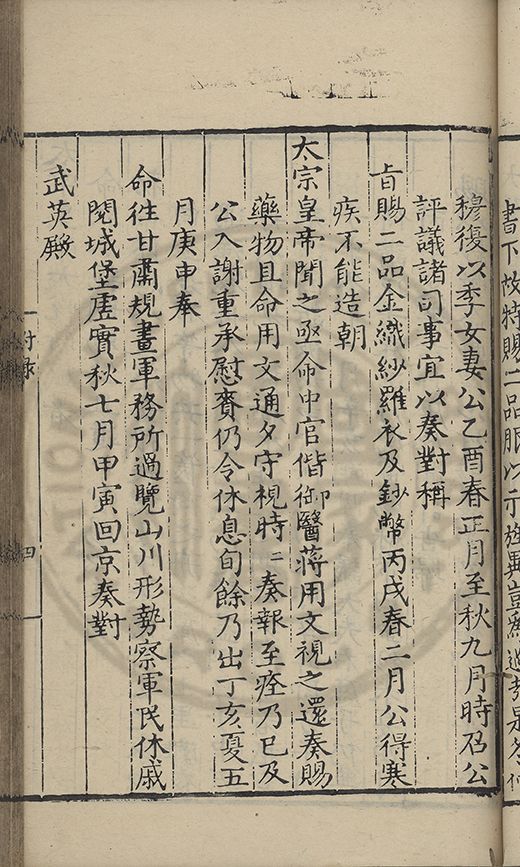 書下故特賜二品服以示
穆復以季女妻公乙酉春正月至秋九月時召公
評議諸司事宜以奏對稱
旨賜二品金織紗羅衣及鈔幣丙戌春二月公得寒
疾不能造朝
太宗皇帝聞之亟命中官偕御醫蔣用文視之還奏賜
藥物且命用文通夕守視時二奏報至痊乃已及
公入謝重承慰賚仍令休息旬餘乃出丁亥夏五
月庚申奉
命往甘肅規畫軍務所過覽山川形勢察軍民休戚
閱城堡虛實秋七月甲寅回京奏對
武英殿
附錄
四